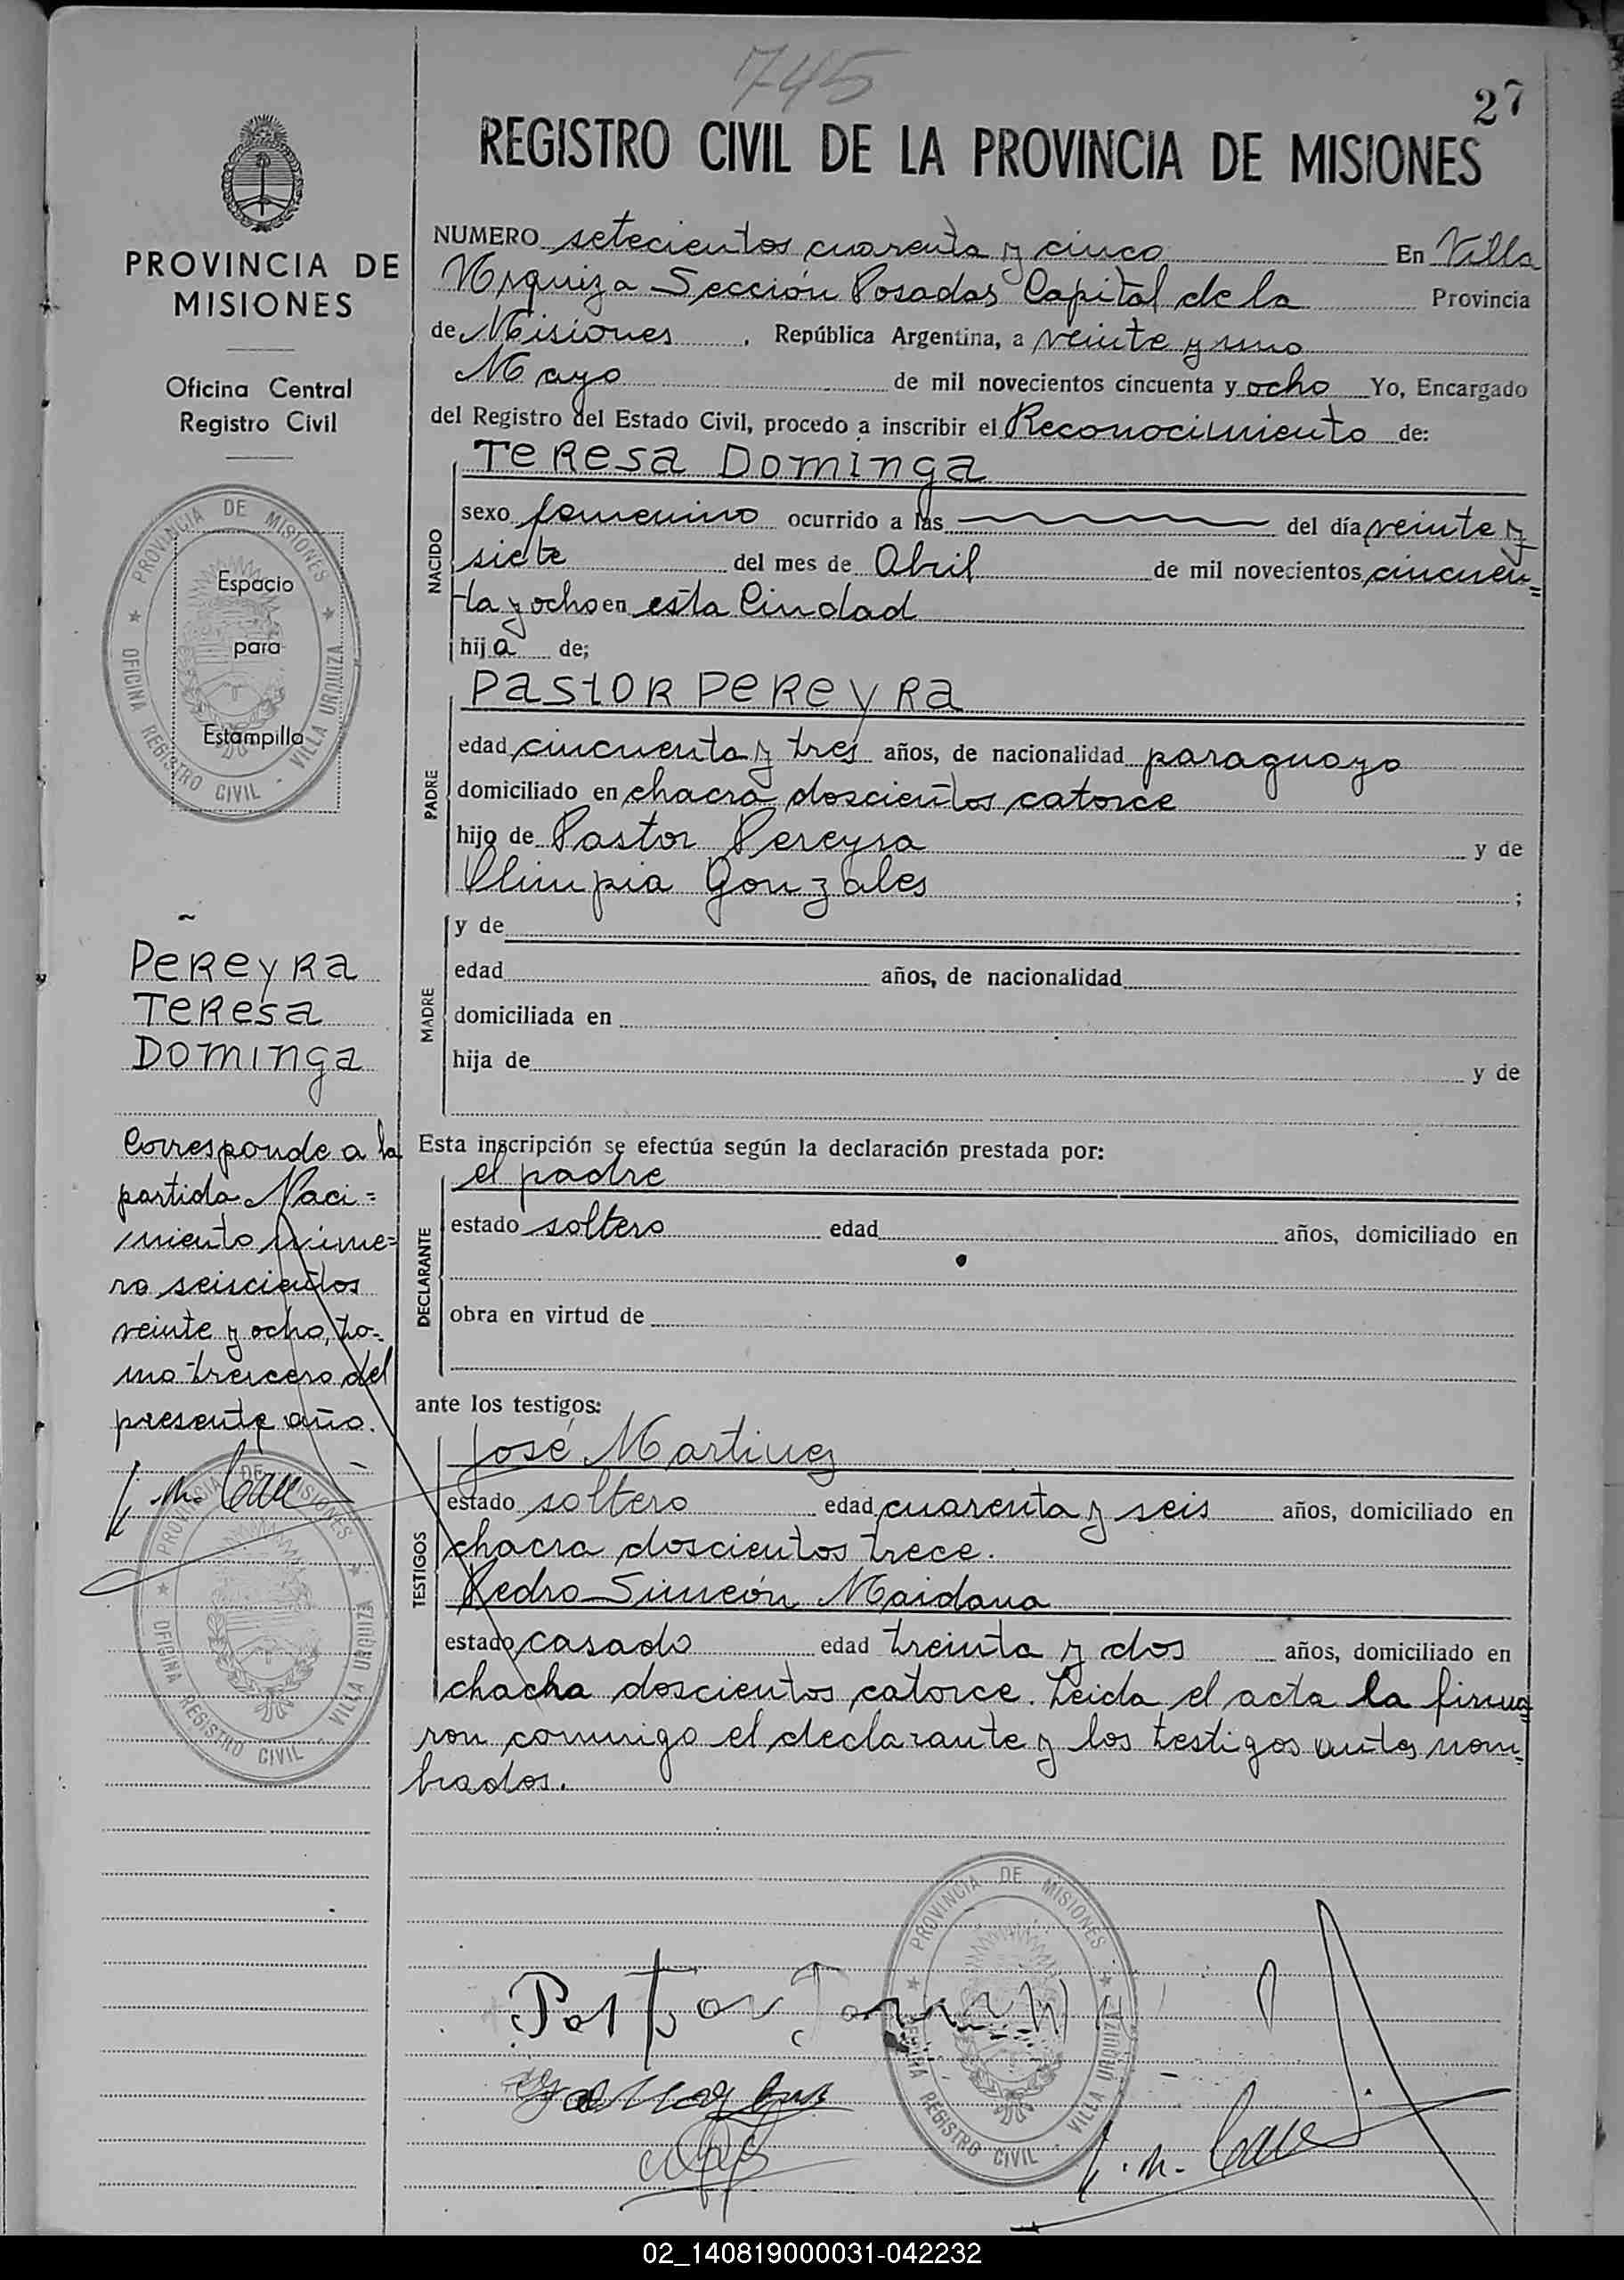 745
27
REGISTRO CIVIL DE LA PROVINCIA DE MISIONES
PROVINCIA DE
MISIONES
Oficina Central
Registro Civil
PROVINCIA DE MISIONES
OFICINA REGISTRO CIVIL - VILLA URQUIZA
Espacio
para
Estampilla
PEREYRA
TERESA
DOMINGA
Corresponde a la
partida Naci=
miento núme=
ro seiscientos
veinte y ocho, to=
mo trercero del
presente año.
PROVINCIA DE MISIONES
OFICINA REGISTRO CIVIL - VILLA URQUIZA
NUMERO setecientos cuarenta y cinco En Villa
Urquiza Sección Posadas Capital de la Provincia
de Misiones. República Argentina, a veinte y uno
Mayo de mil novecientos cincuenta y ocho Yo, Encargado
del Registro del Estado Civil, procedo a inscribir el Reconocimiento de:
NACIDO
TERESA DOMINGA
sexo femenino ocurrido a las del día veinte y
siete del mes de Abril de mil novecientos cincuen=
ta y ocho en esta Ciudad
hija de;
PADRE
PASTOR PEREYRA
edad cincuenta y tres años, de nacionalidad paraguayo
domiciliado en chacra doscientos catorce
hijo de Pastor Pereyra y de
Olimpia Gonzales ;
MADRE
y de
edad años, de nacionalidad
domiciliada en
hija de y de
Esta inscripción se efectúa según la declaración prestada por:
DECLARANTE
el padre
estado soltero edad años, domiciliado en
obra en virtud de
ante los testigos:
TESTIGOS
José Martinez
estado soltero edad cuarenta y seis años, domiciliado en
chacra doscientos trece.
Pedro Simeón Maidana
estado casado edad treinta y dos años, domiciliado en
chacha doscientos catorce. Leida el acta la firma=
ron conmigo el declarante y los testigos antes nom=
brados.
Pastor
PROVINCIA DE MISIONES
OFICINA REGISTRO CIVIL - VILLA URQUIZA
02_140819000031-042232